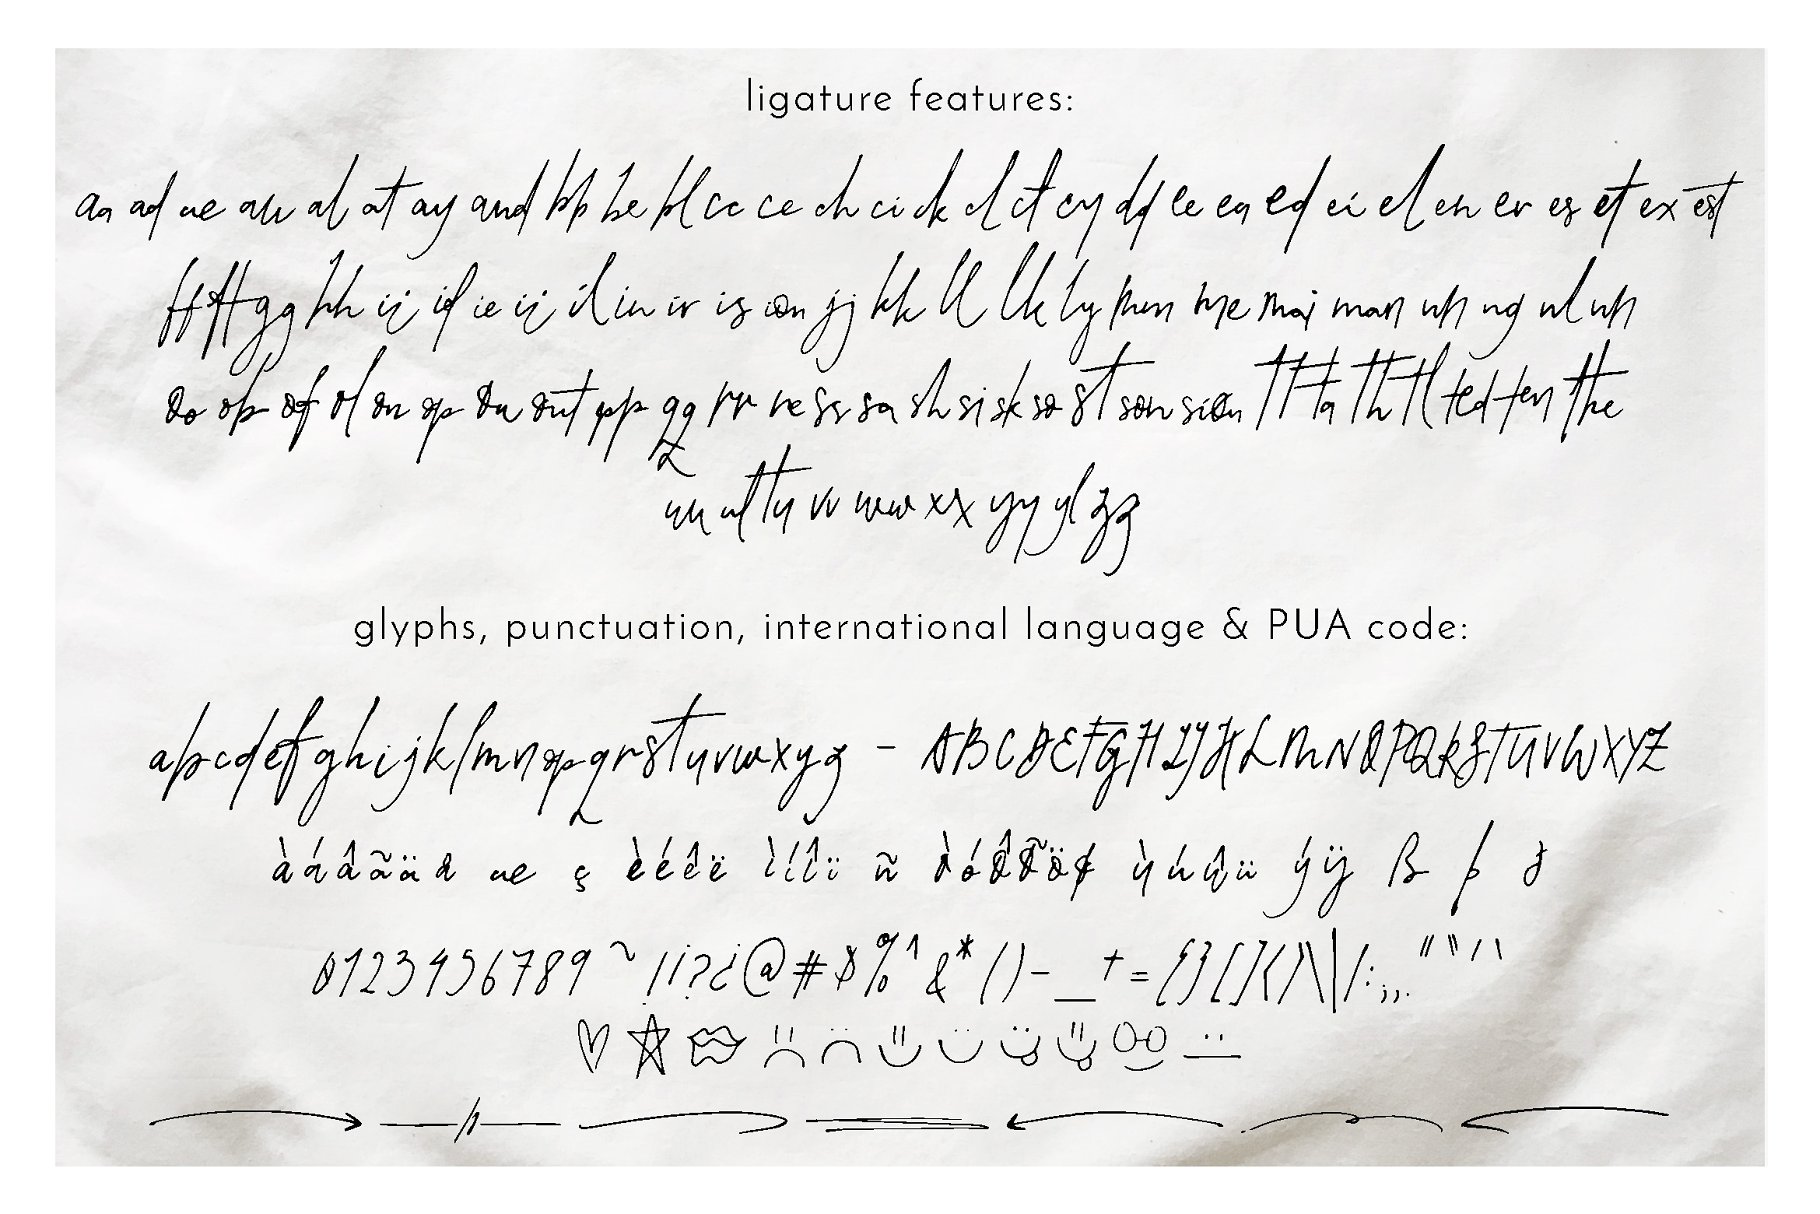 ligature features:
aa ad ae au al at ay and bb be bl cc ce ch ci ck cl ct cy dd ee ea ed ei el en er es et ex est
ff fft gg hh ij id ie ij il in ir is ion jj kk ll lk ly mm me mai man nn ng nl nh
oo ob of ol on op ou out pp qq rr re ss sa sh si sk so st son sion tt ta th tl ted ten the
uu ul tu vv ww xx yy yl zz
glyphs, punctuation, international language & PUA code:
abcdefghijklmnopqrstuvwxyz - ABCDEFGHIJKLMNOPQRSTUVWXYZ
àáâãäå æ ç èéêë ìíîï ñ òóôõöø ùúûü ýÿ ß þ
0123456789 ~ !¡?¿@#$%^&*()-_+={}[]<>\|/:;,."“'‘